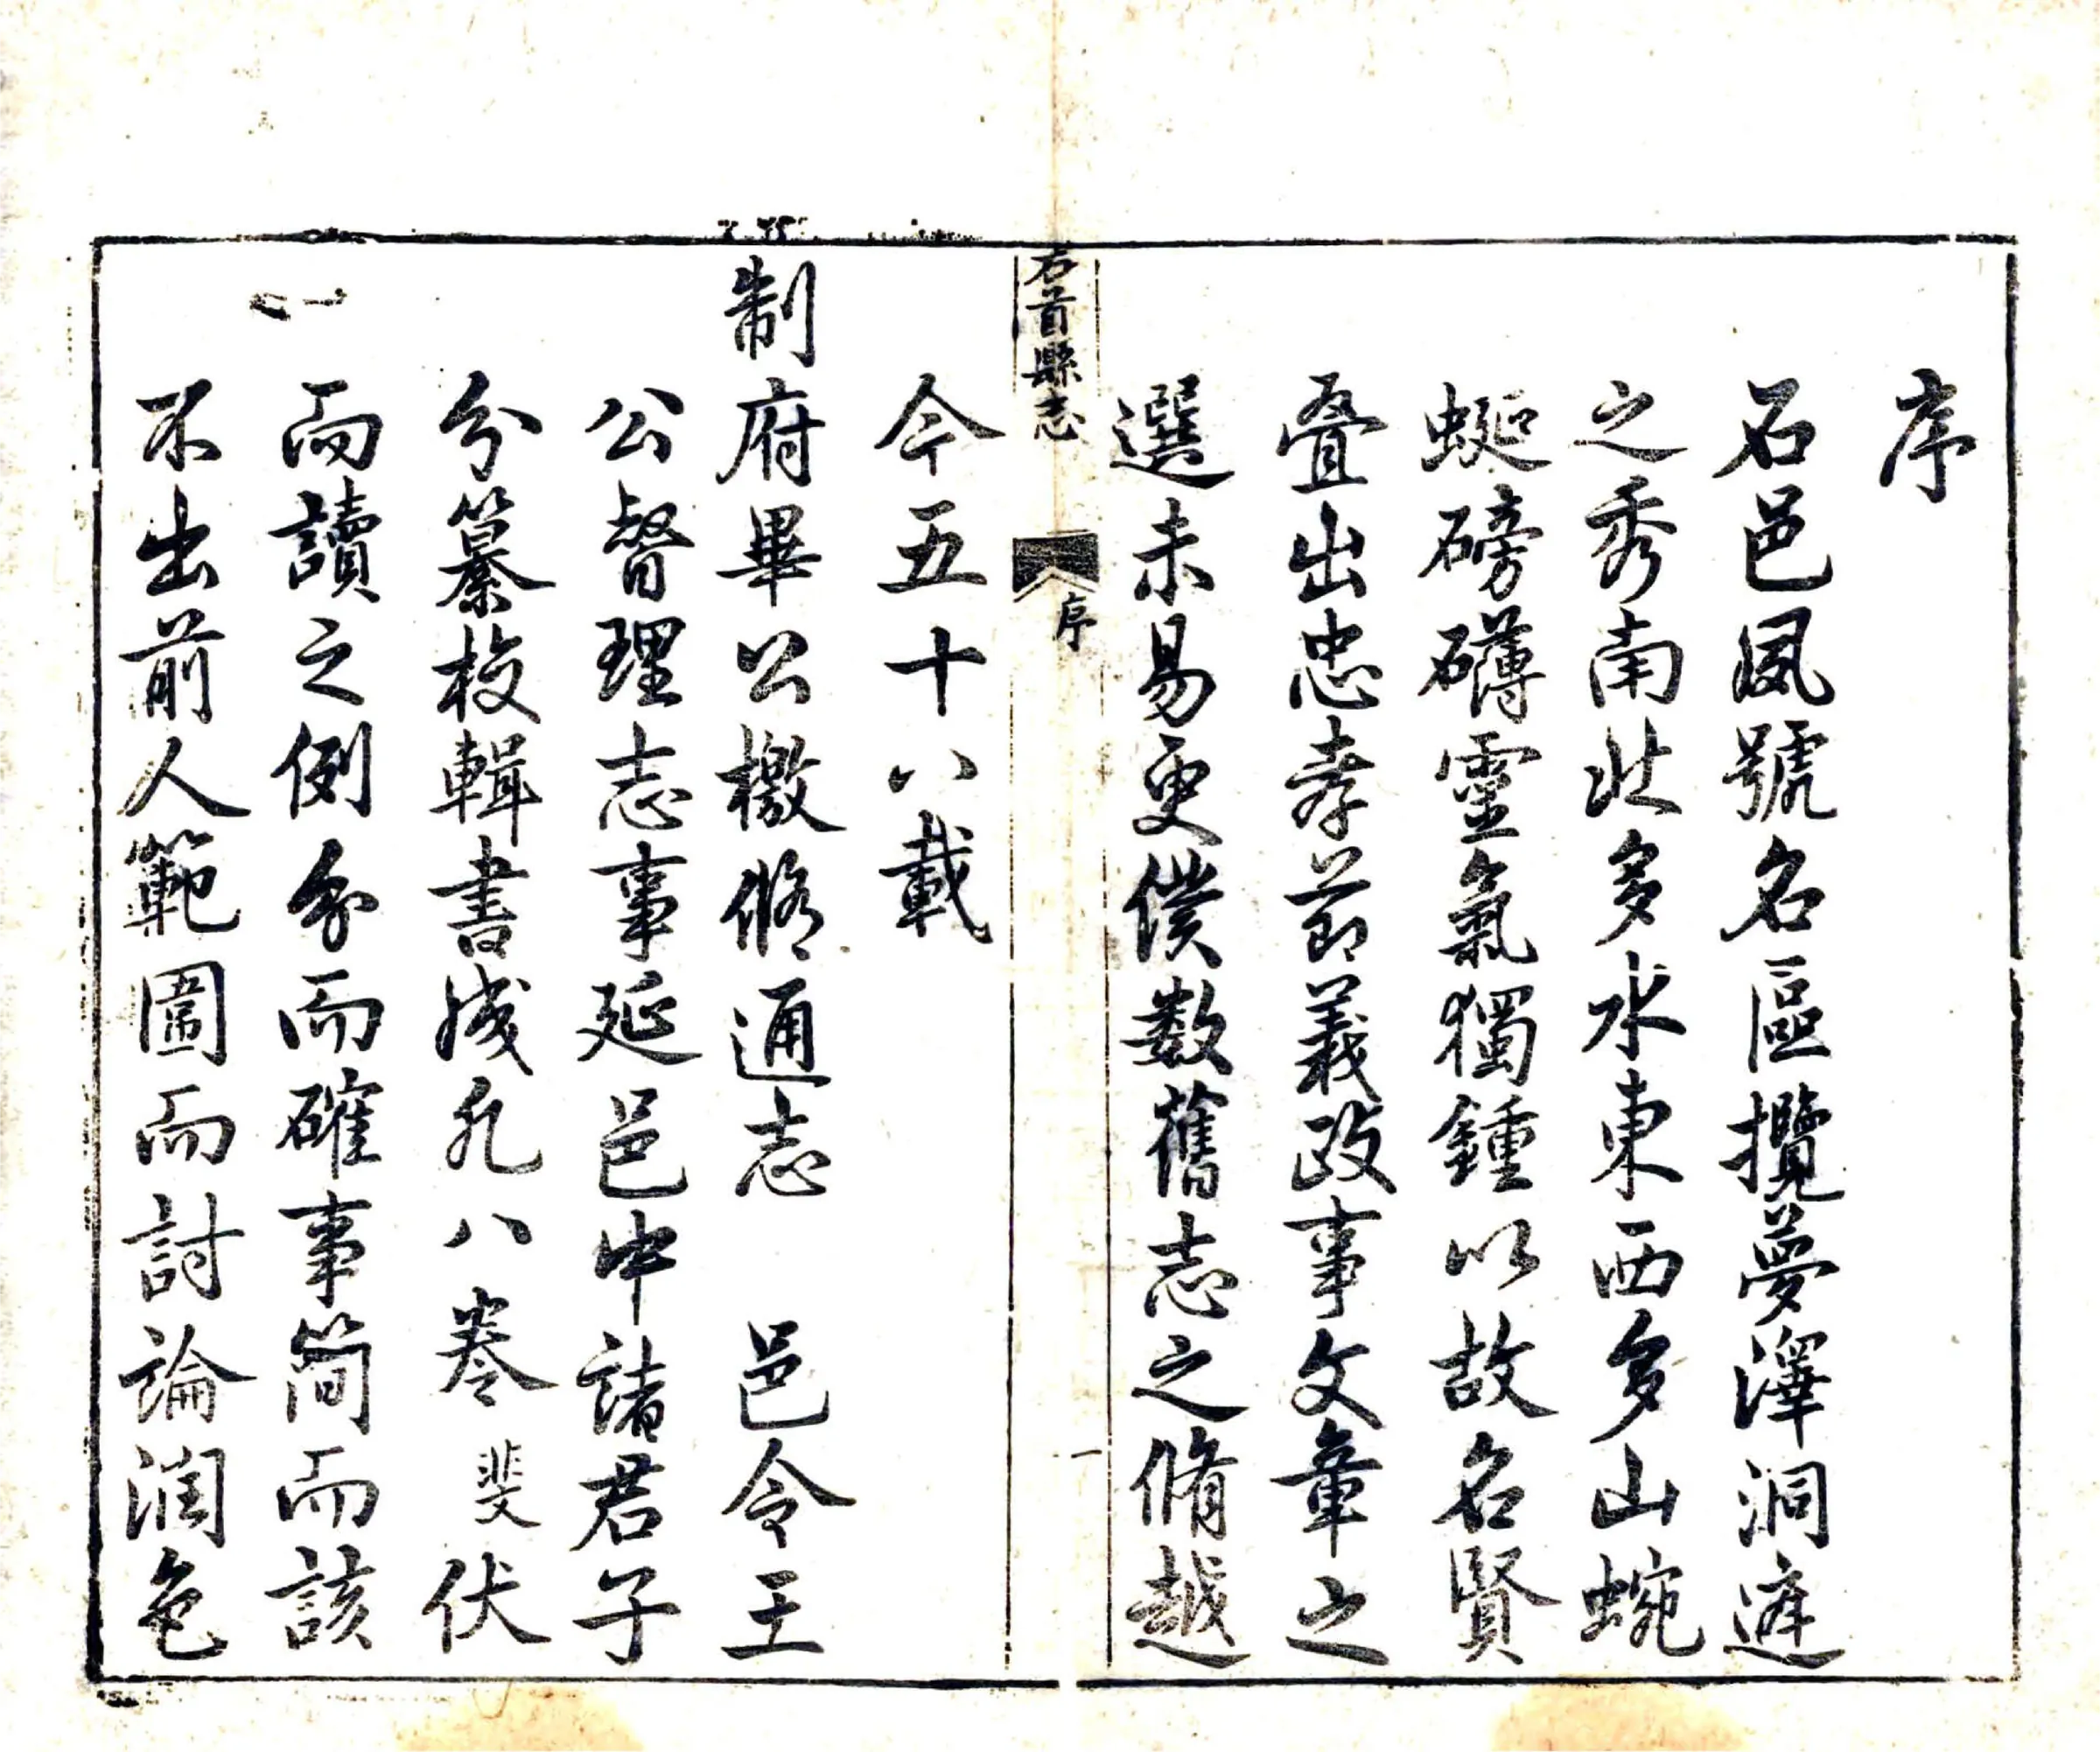 序
石邑夙號名區攬夢澤洞庭
之秀南北多水東西多山蜿
蜒磅礴靈氣獨鍾以故名賢
叠出忠孝節義政事文章之
選未易更僕数舊志之脩越
石首縣志
序
一
今五十八載
制府畢公檄脩通志 邑令王
公督理志事延邑中諸君子
分纂校輯書成凡八卷斐伏
而讀之例分而確事簡而該
不出前人範圍而討論潤色